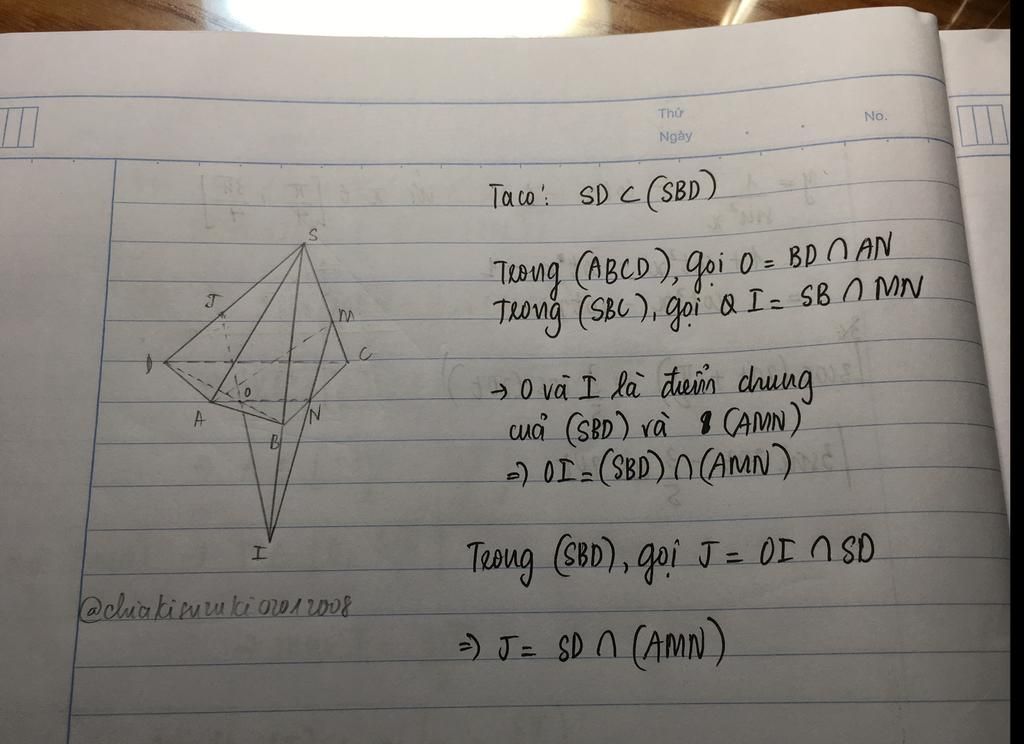 Thứ
Ngày
No.
Ta có: SD ⊂ (SBD)
Trong (ABCD), gọi O = BD ∩ AN
Trong (SBC), gọi I = SB ∩ MN
→ O và I là điểm chung
của (SBD) và (AMN)
=) OI = (SBD) ∩ (AMN)
Trong (SBD), gọi J = OI ∩ SD
=) J = SD ∩ (AMN)
S
J
M
D
C
O
A
N
B
I
@chiakisuzuki02012008